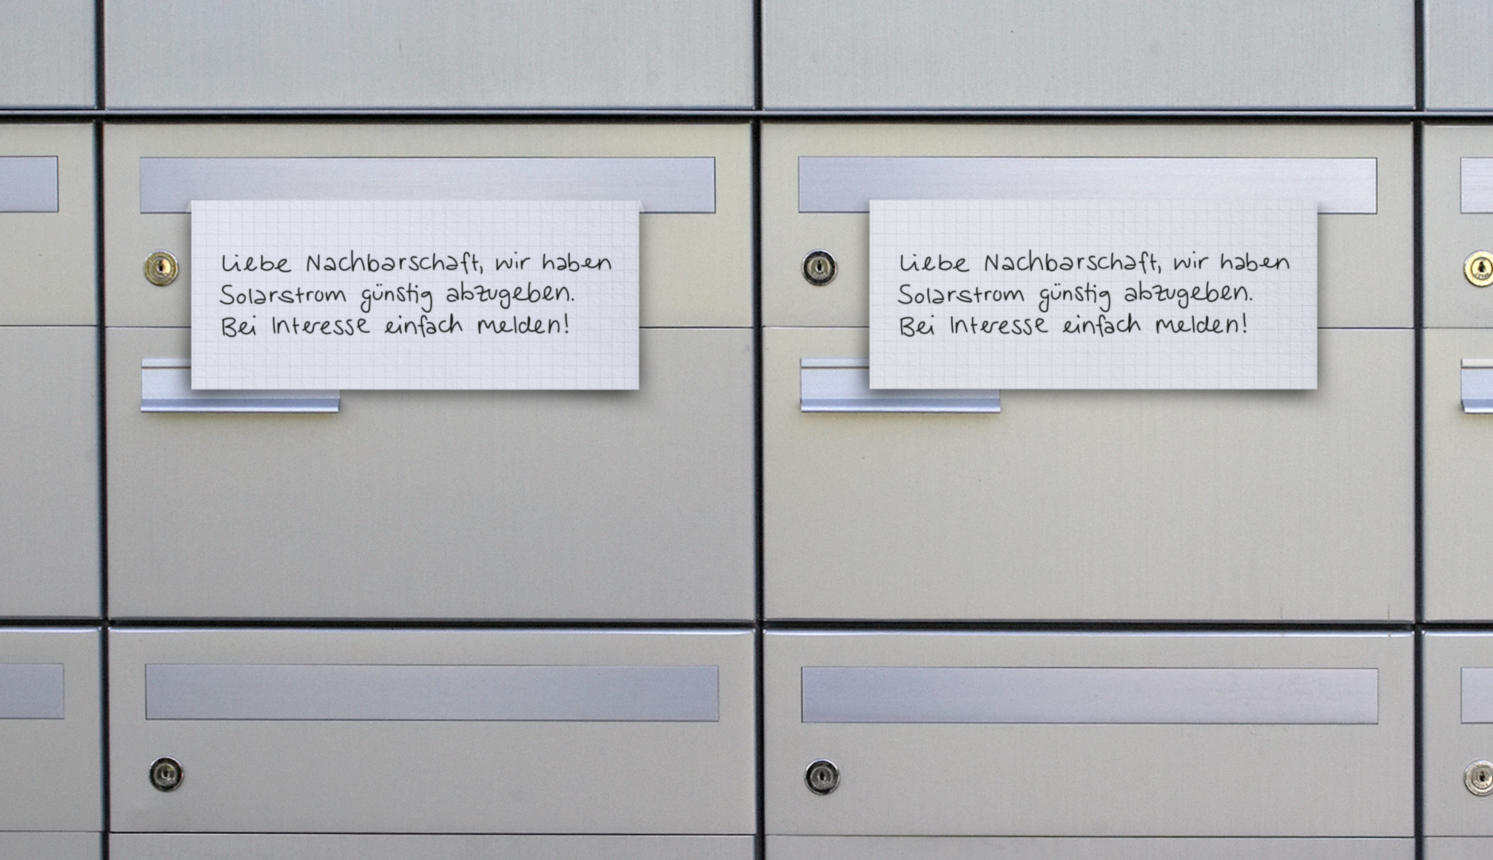 Liebe Nachbarschaft, wir haben
Solarstrom günstig abzugeben.
Bei Interesse einfach melden!
Liebe Nachbarschaft, wir haben
Solarstrom günstig abzugeben.
Bei Interesse einfach melden!